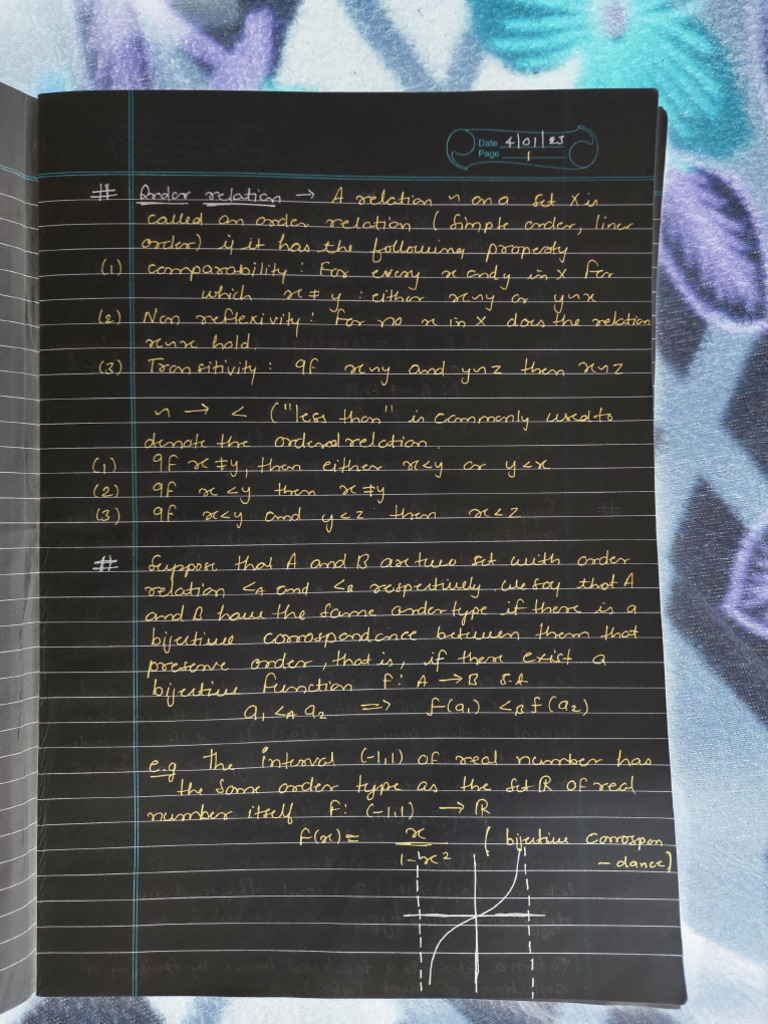 Date 4/01/23
Page 1
# Order relation → A relation n on a set X is
called an order relation ( Simple order, liner
order) if it has the following property
(1) comparability : For every x and y in X for
which x ≠ y : either xny or ynx
(2) Non reflexivity : For no x in X does the relation
xnx hold.
(3) Transitivity : If xny and ynz then xnz
n → < ("less than" is commonly used to
denote the ordered relation.
(1) If x ≠ y, then either x<y or y<x
(2) If x <y then x ≠ y
(3) If x<y and y<z then x<z
# Suppose that A and B are two set with order
relation <A and <B respectively. We say that A
and B have the same order type if there is a
bijective correspondance between them that
preserve order, that is, if there exist a
bijective function f: A → B s.t
a₁ <A a₂ ⇒ f(a₁) <B f(a₂)
e.g The interval (-1,1) of real number has
the same order type as the set ℝ of real
number itself f: (-1,1) → ℝ
f(x) = x / 1-x² ( bijective correspon
- dance)